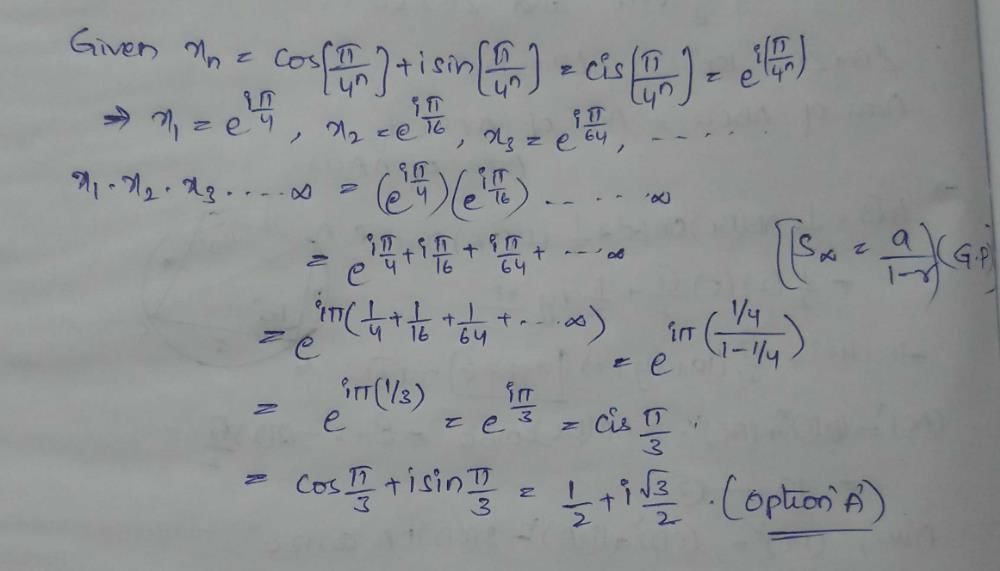 Given xₙ = cos(π/4ⁿ) + i sin(π/4ⁿ) = cis(π/4ⁿ) = e^{i(π/4ⁿ)}
⇒ x₁ = e^{iπ/4}, x₂ = e^{iπ/16}, x₃ = e^{iπ/64}, -----
x₁·x₂·x₃ .... ∞ = (e^{iπ/4})(e^{iπ/16}) ..... ∞
= e^{iπ/4 + iπ/16 + iπ/64 + ....∞} [(S∞ = a/(1-r))(G.P)]
= e^{iπ(1/4 + 1/16 + 1/64 + ...∞)} = e^{iπ((1/4)/(1-1/4))}
= e^{iπ(1/3)} = e^{iπ/3} = cis π/3.
= cos π/3 + i sin π/3 = 1/2 + i √3/2 . (option 'A')